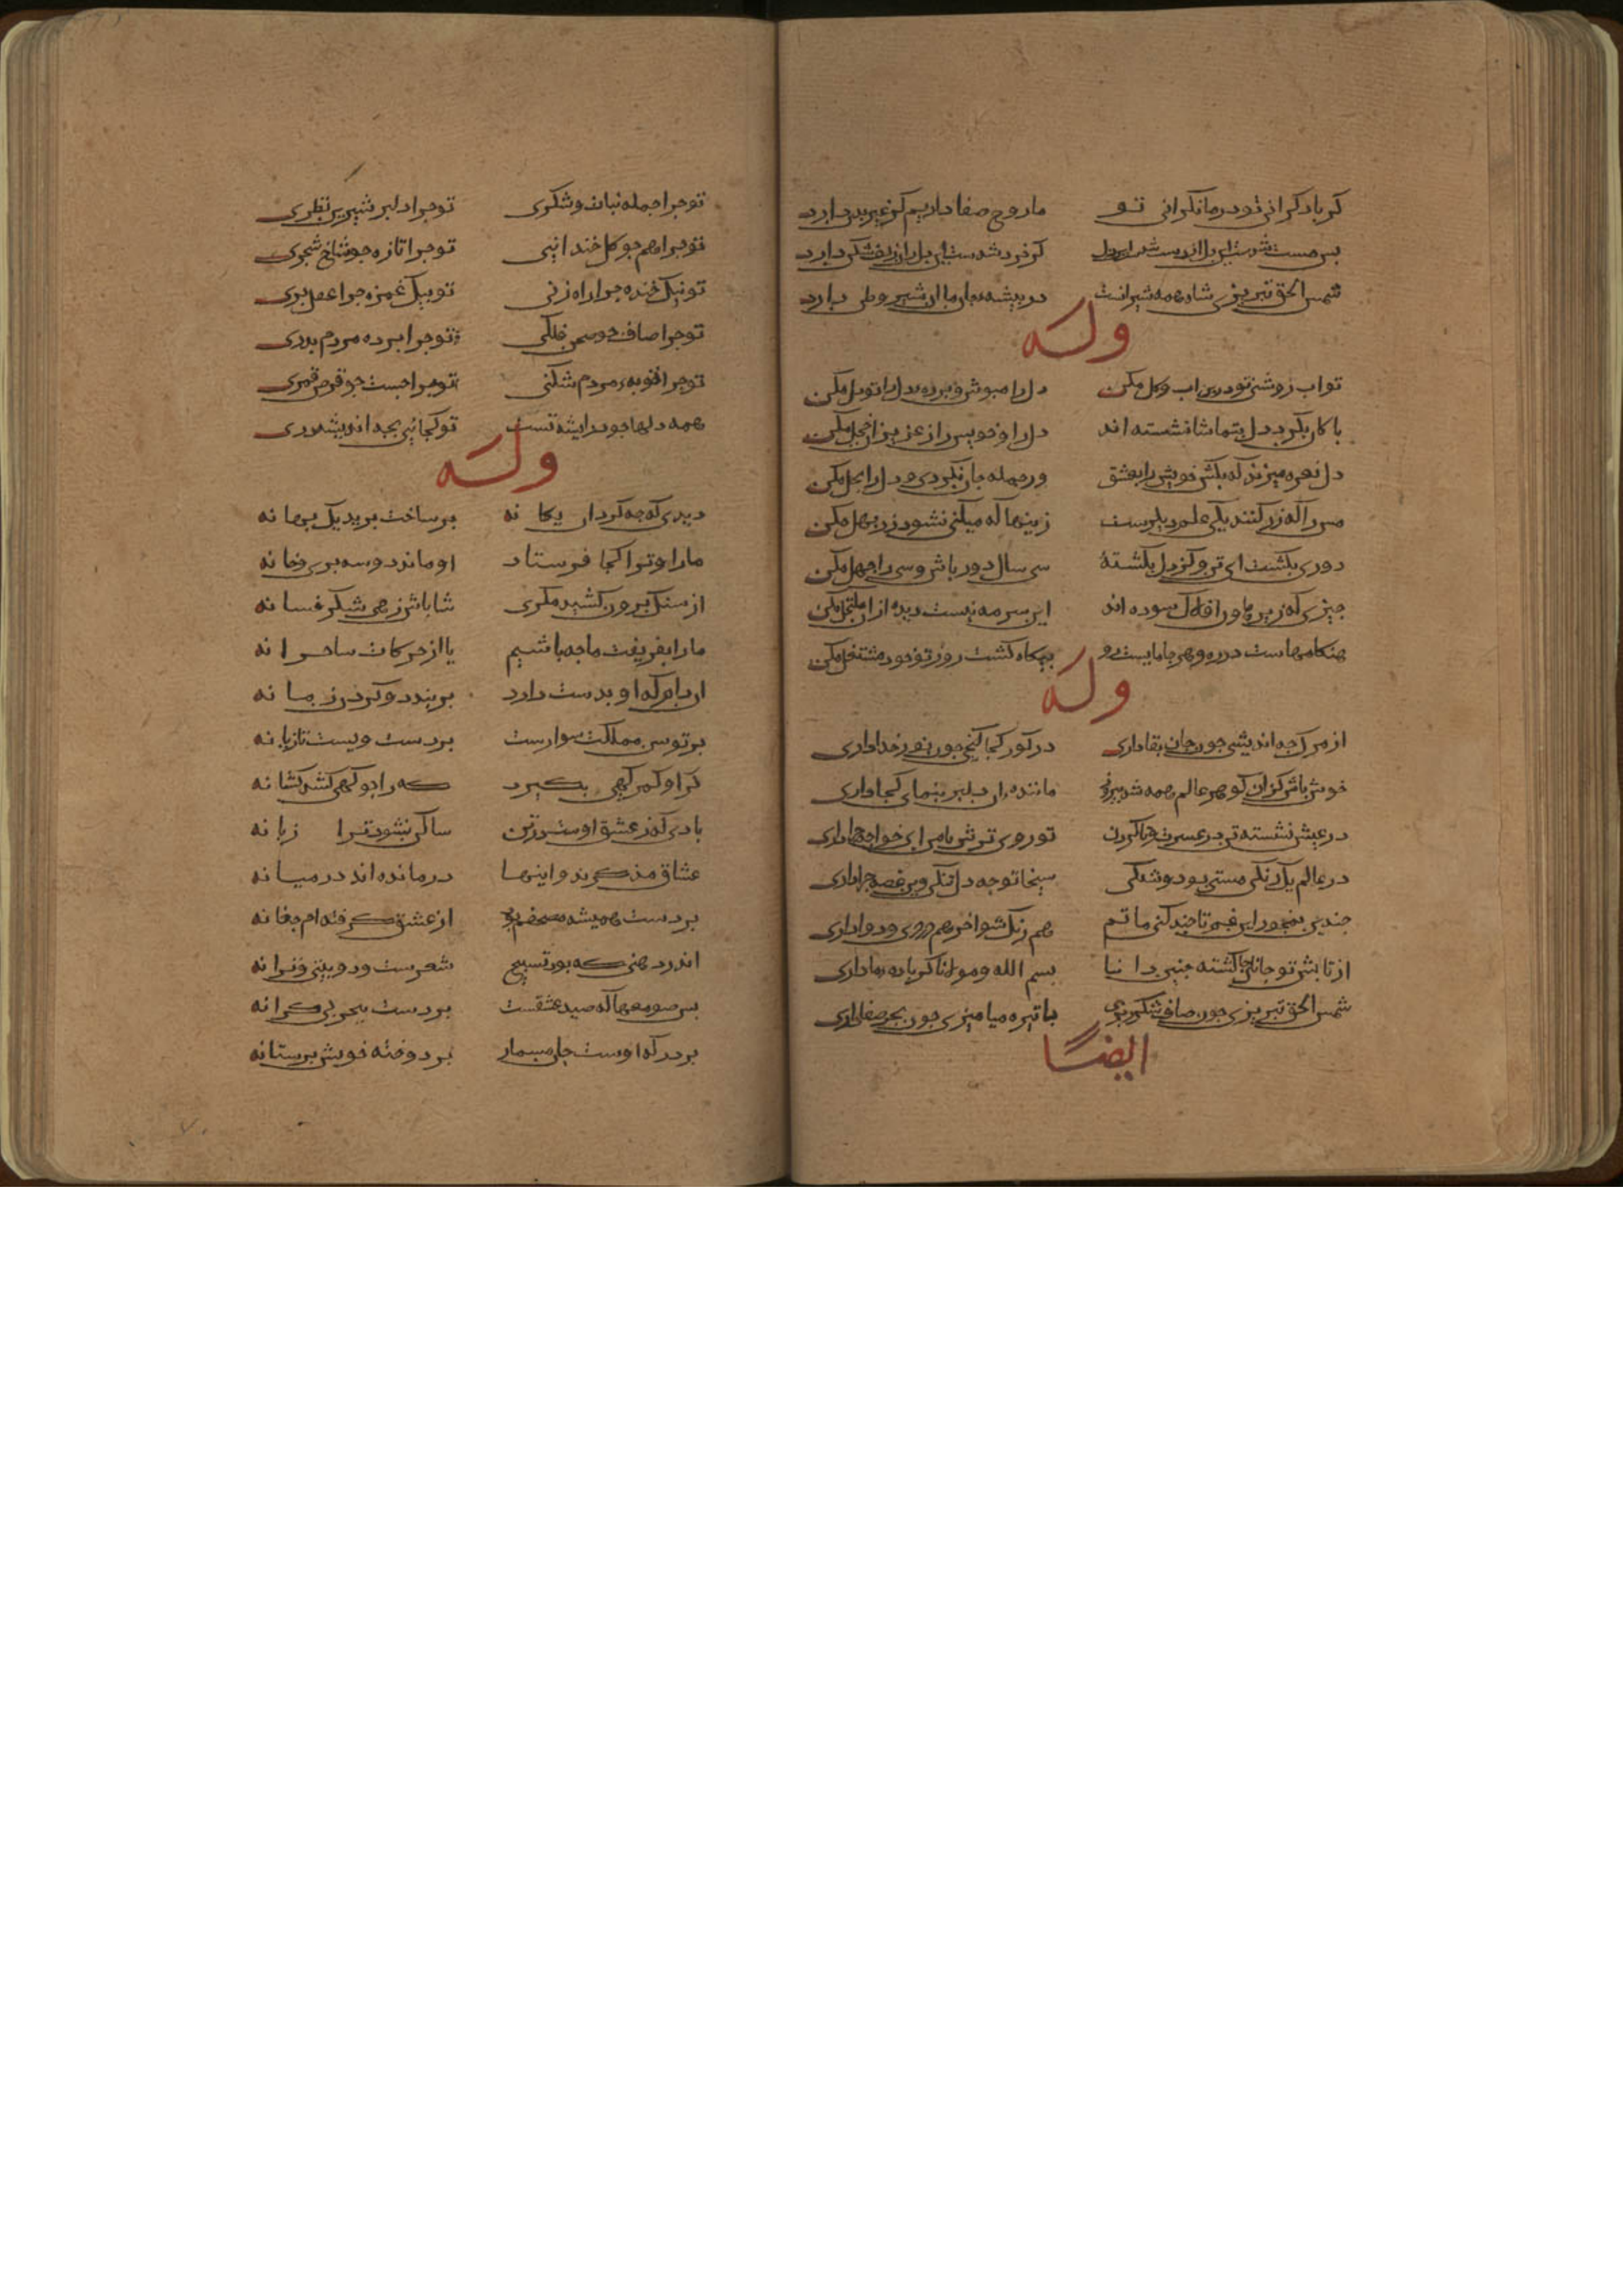 کر باد کرانی تو در ما نکرانی تو ما روح صفا داریم کر غیر بدن دارد
بس مست شدست این دل
شمس الحق تبریزی شاه همه شیرانست در بیشه جان ما آن شیر وطن دارد
وله
تو اب روشنی تو درین اب و کل مکن دل را مپوش و پرده دل را تو بل مکن
باکان بکرد دل بتماشا نشسته اند دل را و خویش را ز عزیزان خجل مکن
دل نعره میزند که بکش خویش را بعشق ور جمله جان نکردی دل را بحل مکن
مس را که زر کنند یکی علم دیکرست زینها که میکنی نشود زر بهل مکن
دوری بکشت ای تن و کز دل بکشتهٔ سی سال دور باش و سی را چهل مکن
چیزی که زیر هاون افلاک سوده اند این سرمه نیست دیده از ان مکتحل مکن
هنکامهاست در ره و هر جا مایست رو بیکاه کشت روز تو خود مشتغل مکن
وله
از مرک چه اندیشی چون جان بقا داری در کور کجا کنجی چون نور خدا داری
خوش باش کزان کوهر عالم همه شد چون زر مانندهٔ ان دلبر بنمای کجا داری
در عیش نشسته تو روی ترش با من ای خواجه چرا داری
در عالم یک رنکی مستی بود و شنکی سیخا تو چه دل تنکی وین غصه چرا داری
جندین بمخور این غم تا چند کنی ماتم هم رنک شو اخر هم روی و دوا داری
از تابش تو جانا جان کشته چنین دانا بسم الله و مولانا کر باده ما داری
شمس الحق تبریزی چون صاف شکر ریزی با تیره میامیزی چون بحر صفا داری
ایضا
تو چرا جمله نبات و شکری تو چرا دلبر شیرین نظری
تو چرا همچو کل خندانی تو چرا تازه چو شاخ شجری
تو بیک خنده چرا راه زنی تو بیک غمزه چرا عقل بری
تو چرا صاف چو صحن فلکی تو چرا برده مردم بدری
تو چرا توبه مردم شکنی تو چرا چست چو قرص قمری
همه دلها چو در اندیشه تست تو کجایی بچه اندیشه دری
وله
دیدی که چه کرد ان یکانه برساخت پریر یک بهانه
ما را و ترا کجا فرستاد او ماند و سه پری خانه
از سنک برون کشید مکری شاباش زهی شکر فسانه
ما را بفریفت ما چه باشیم یا از حرکات ساحرانه
ان دام که او بدست دارد بربندد و کردن زمانه
بر توسن مملکت سوارست بر دست ویست تازیانه
کر او کمر کهی بکیرد که را چو کهی کشد کشانه
بادی که ز عشق اوست در تن ساکن نشود ترا زبانه
عشاق مذکرند و اینها درمانده اند در میانه
بر دست همیشه مصحفم بود از عشق کرفته ام چغانه
اندر دهنی که بود تسبیح شعرست و دو بیتی و ترانه
بس صومعها که صید عشقست بر دست بحر بی کرانه
بر درکه اوست جان مسمار بر دوخته خویش بر ستانه